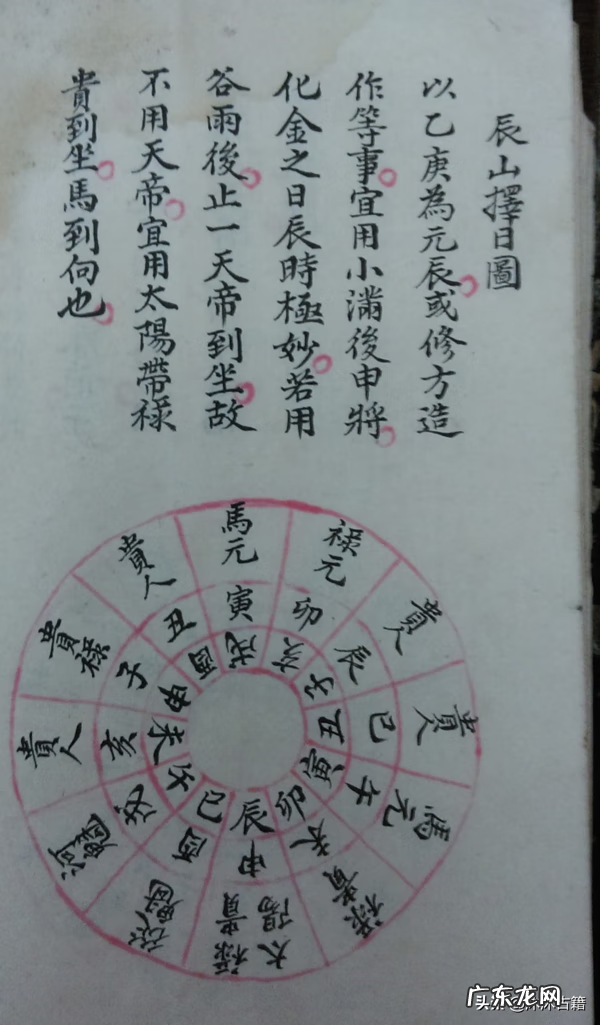 辰山擇日圖
以乙庚為元辰或修方造
作等事宜用小滿後申將
化金之日辰時極妙若用
谷雨後止一天帝到坐故
不用天帝宜用太陽帶祿
貴到坐馬到向也
馬元
祿元
貴人
貴人
馬元
祿貴
太陽祿貴
河魁
貴人
貴祿
貴人
寅
卯
辰
巳
午
未
申
酉
戌
亥
子
丑
戌
亥
子
丑
寅
卯
辰
巳
午
未
申
酉
广东龙网
头条